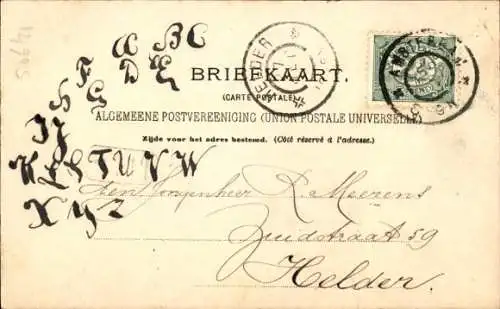 A BC
F D E
BRIEFKAART.
HELDER
AMSTERDAM
H G
(CARTE POSTALE)
ALGEMEENE POSTVEREENIGING (UNION POSTALE UNIVERSELLE)
Zijde voor het adres bestemd. (Côté réservé à l'adresse.)
I J
K L S T U V W
X Y Z
Den Jongenheer R. Meerens
Zuidstraat 59
Helder.